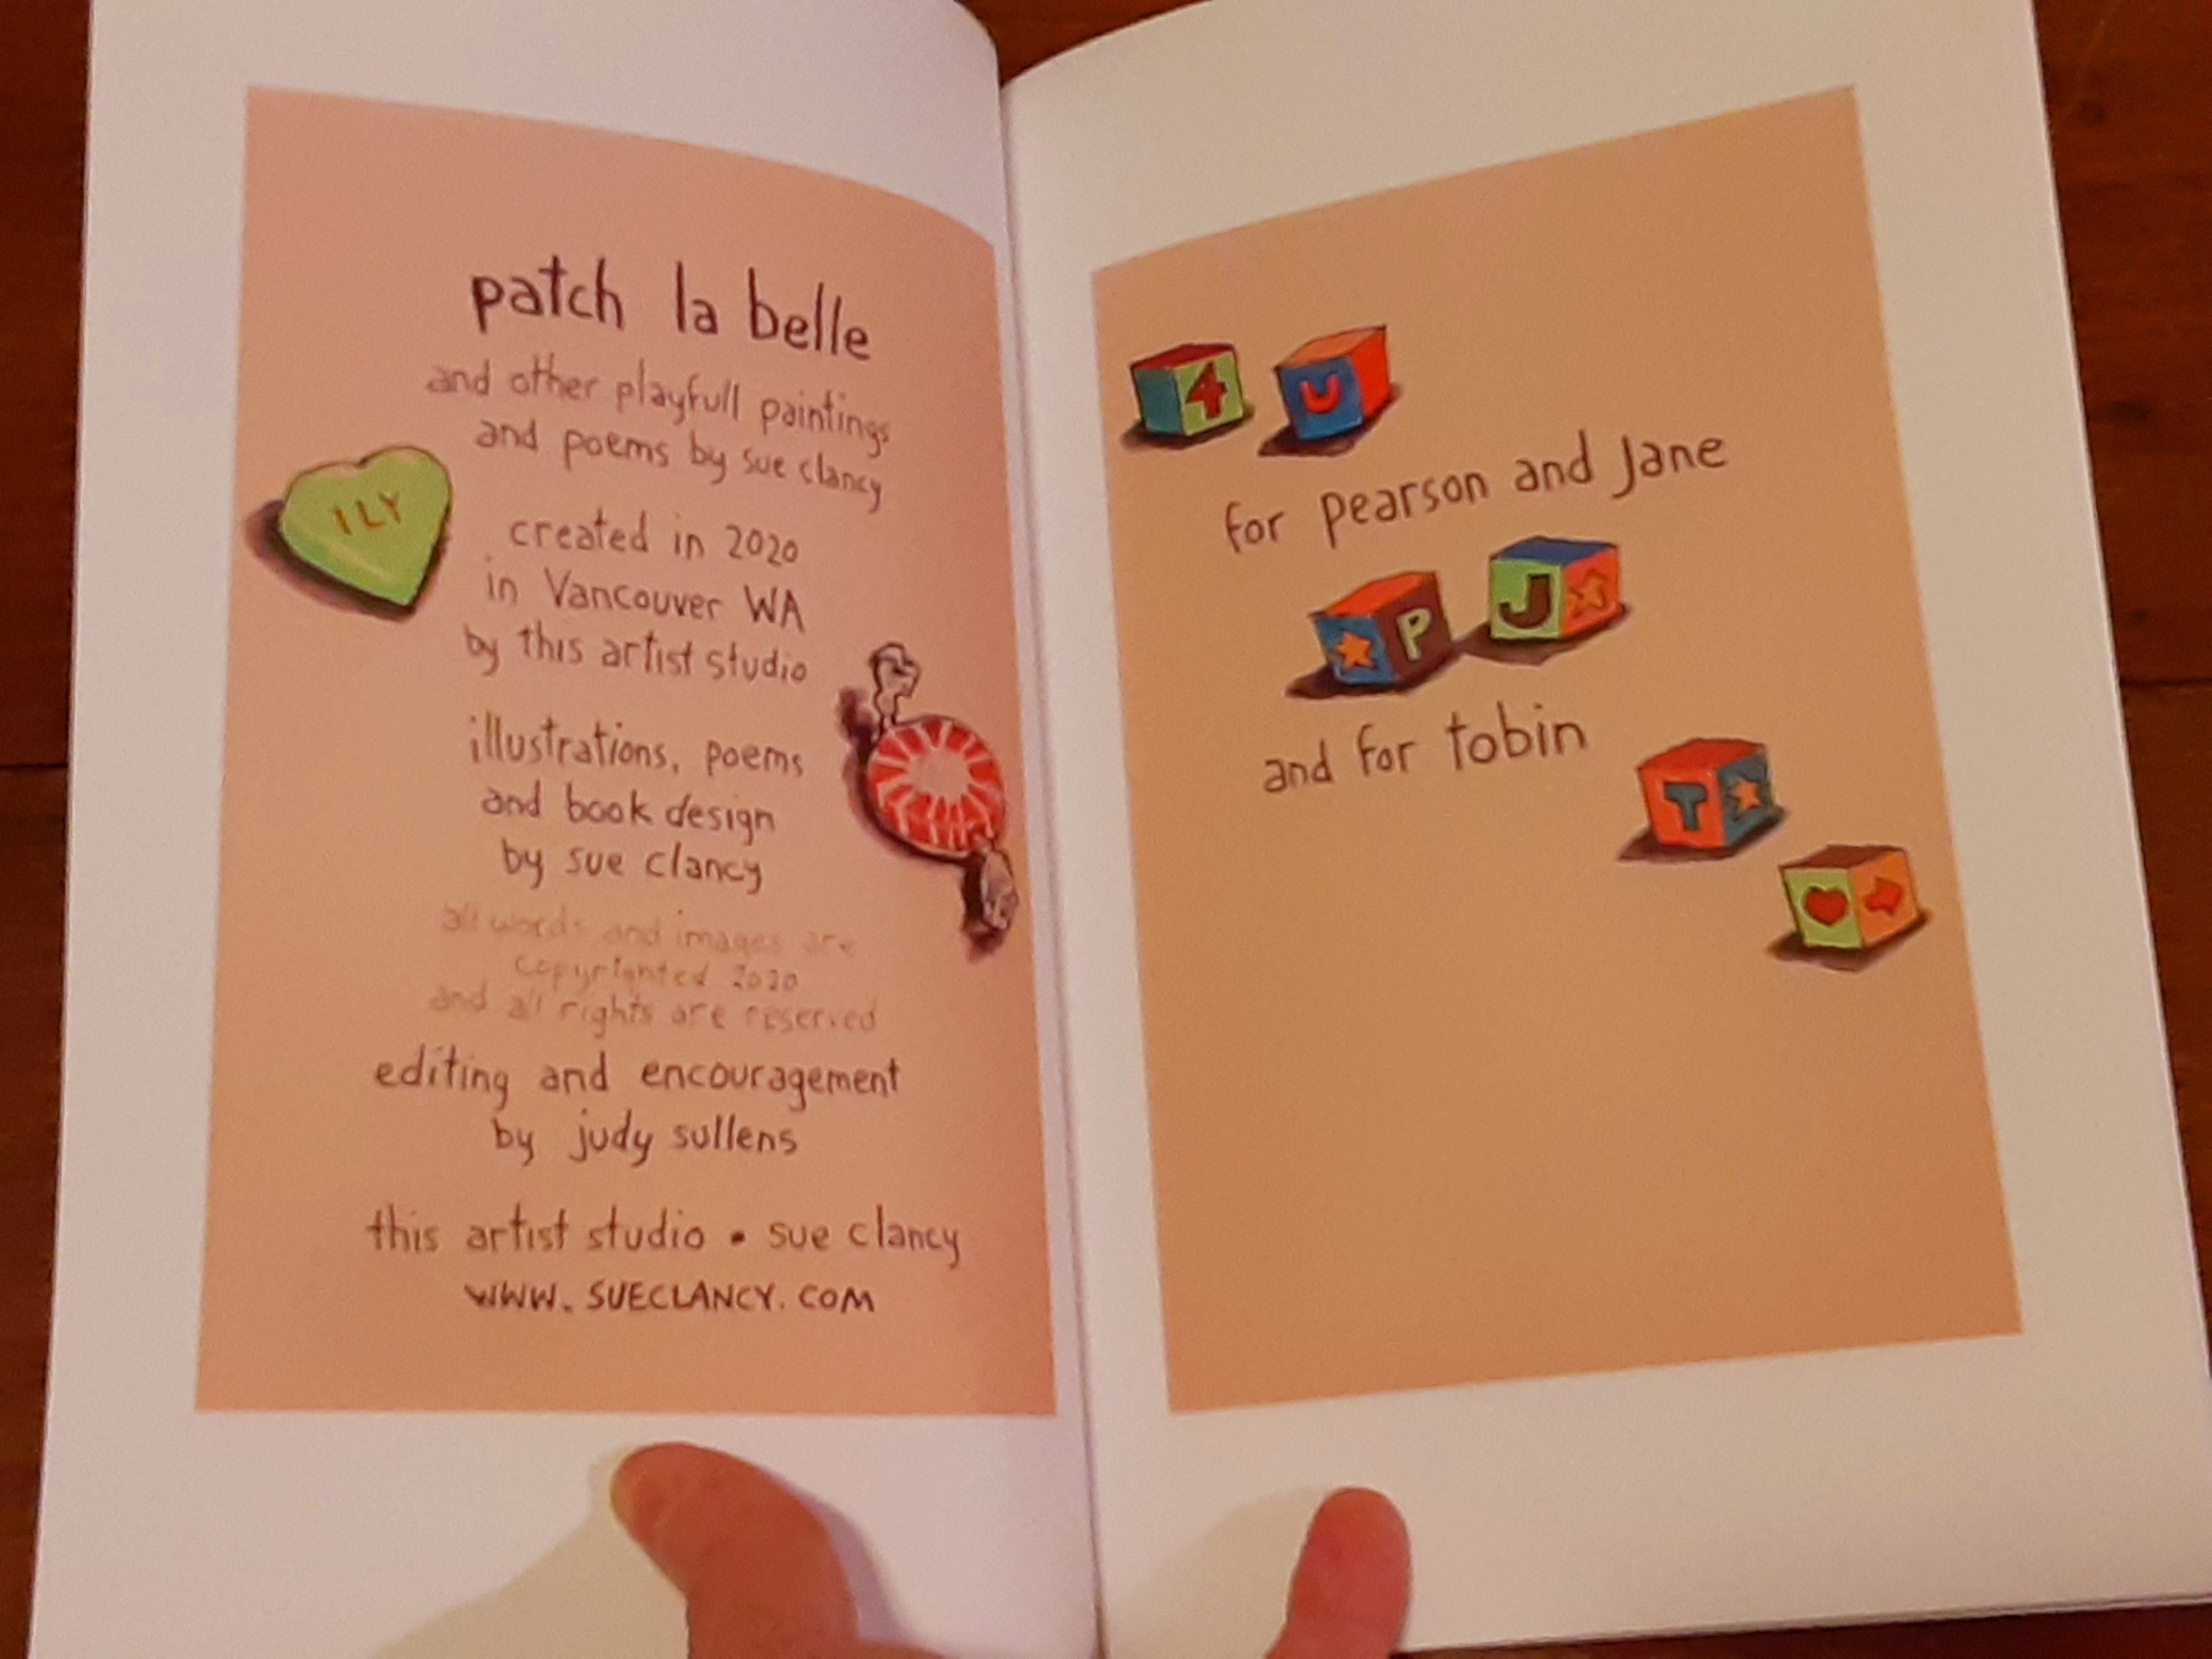 patch la belle
and other playfull paintings
and poems by sue clancy
ILY
created in 2020
in Vancouver WA
by this artist studio
illustrations, poems
and book design
by sue clancy
all words and images are
copyrighted 2020
and all rights are reserved
editing and encouragement
by judy sullens
this artist studio • sue clancy
WWW. SUECLANCY. COM
4 U
for pearson and Jane
P J
and for tobin
T